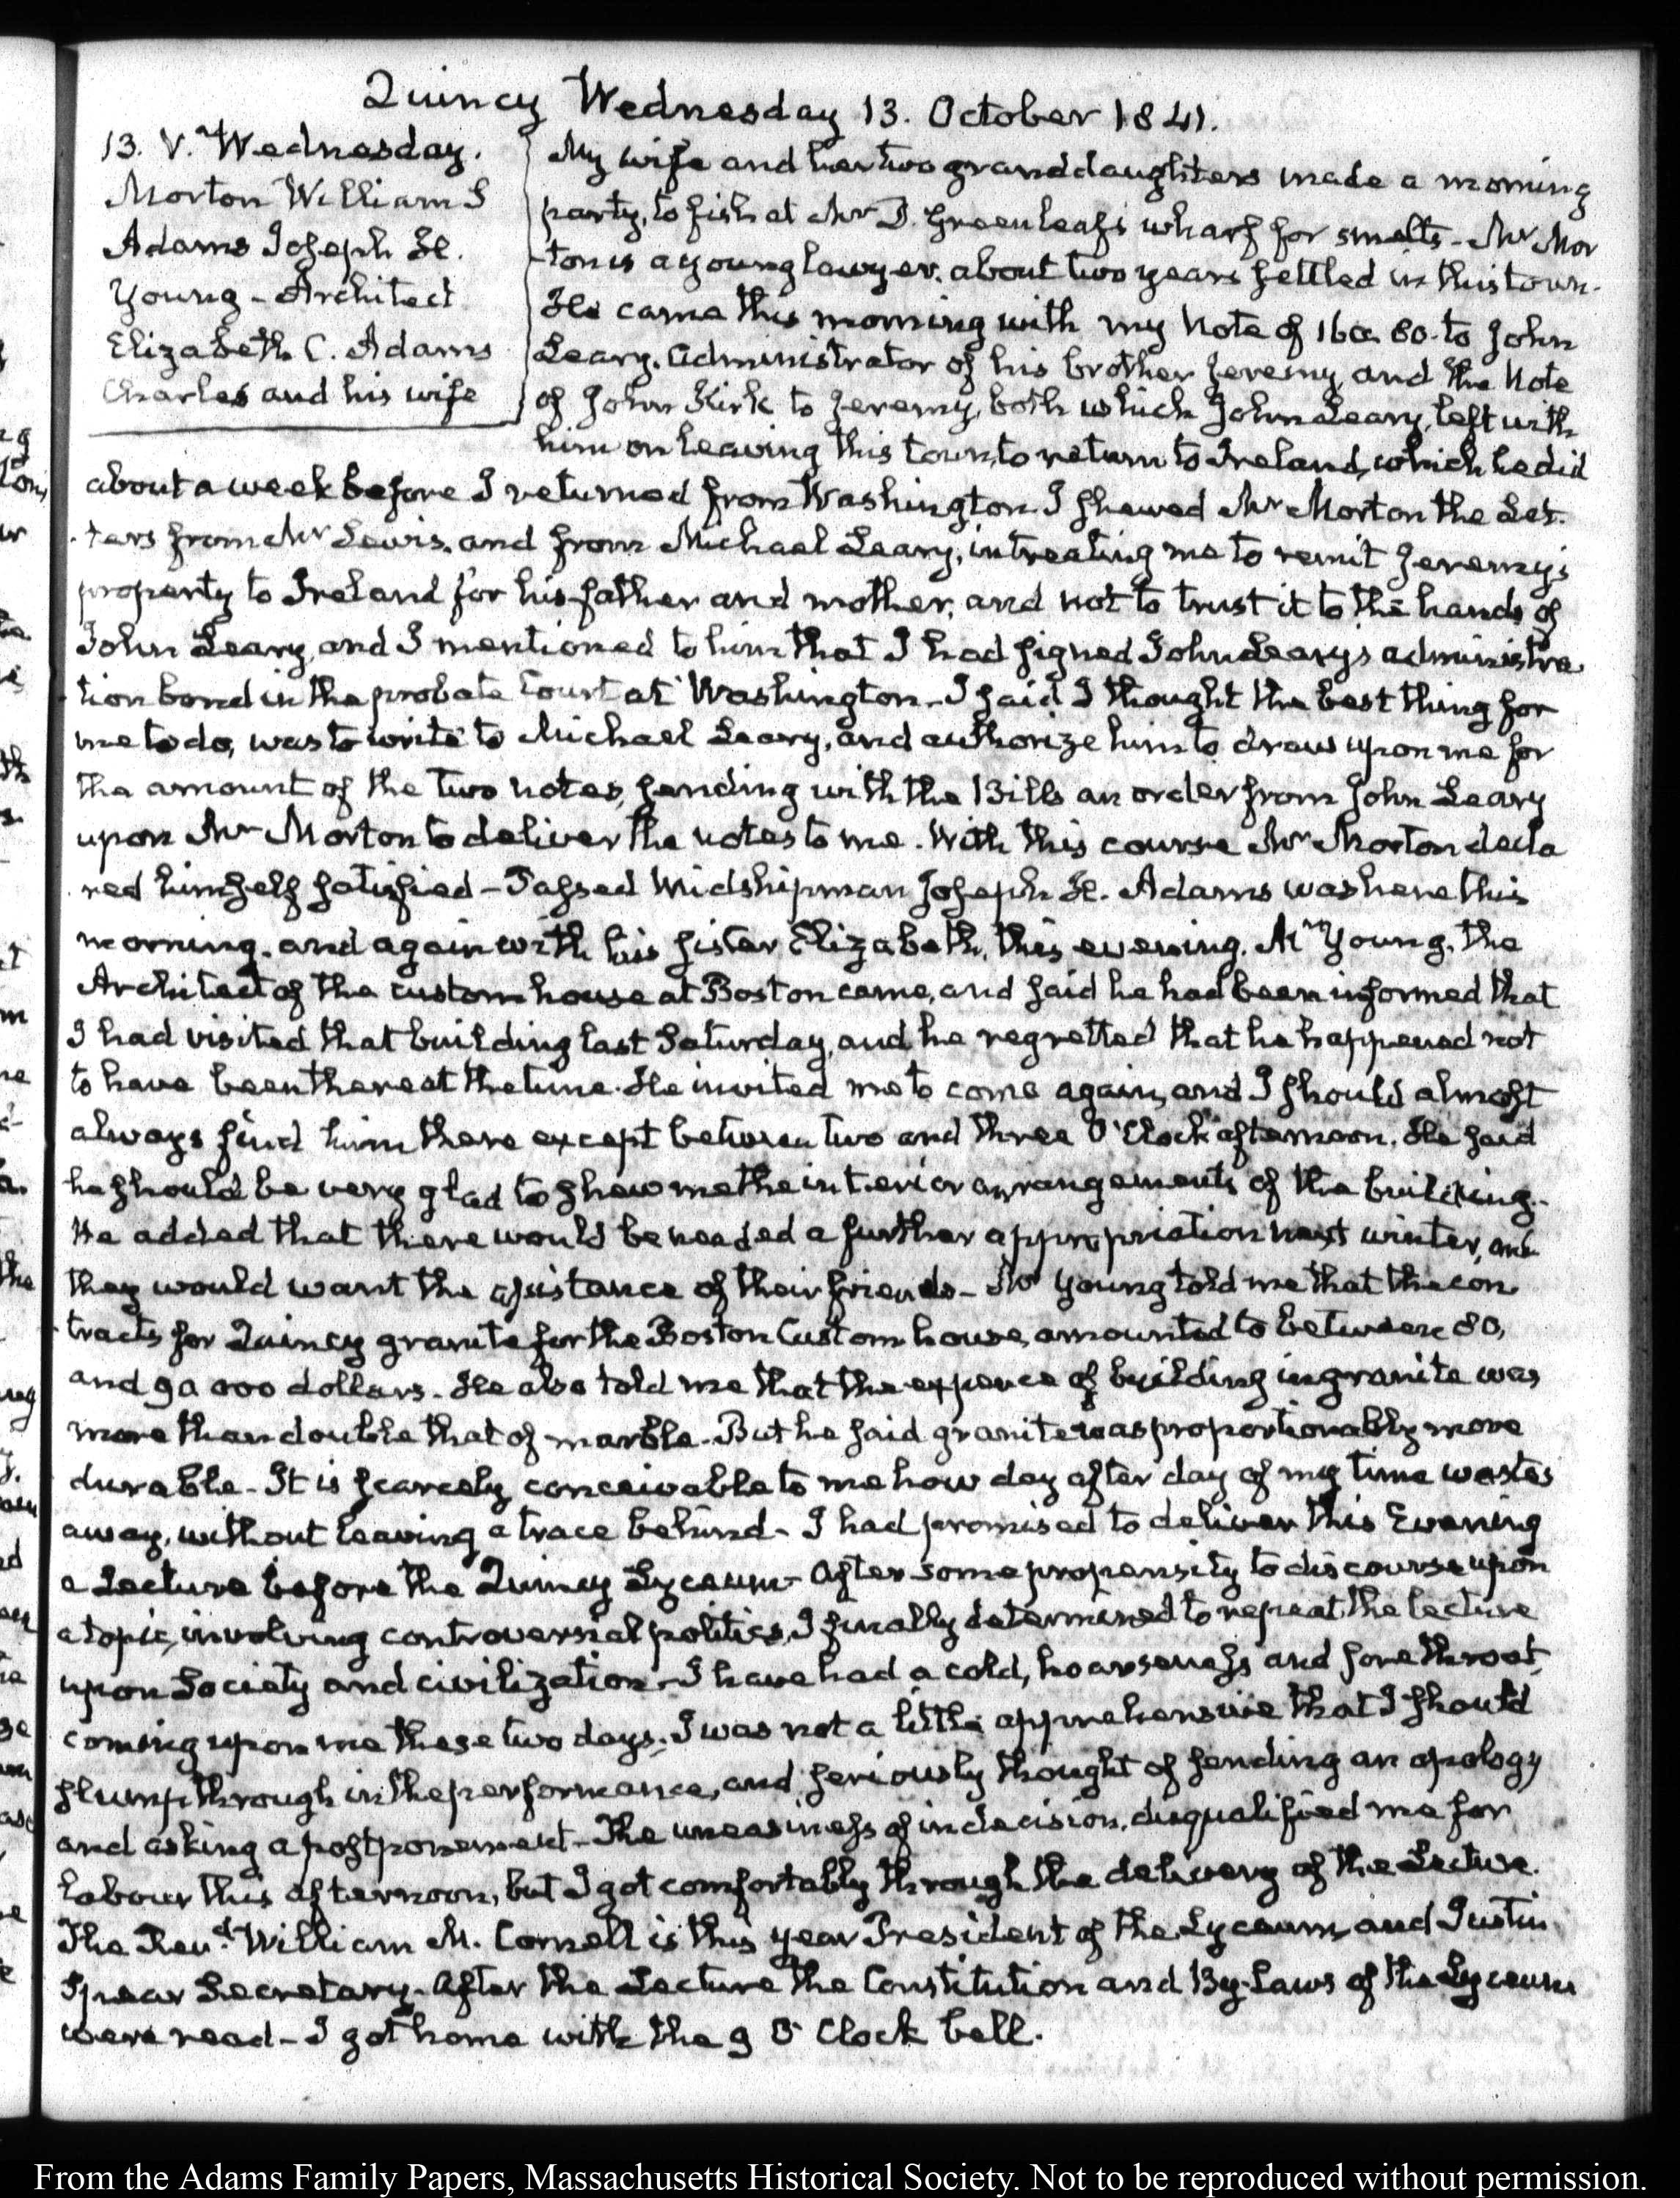 Quincy Wednesday 13. October 1841.
13. V. Wednesday.
Morton William S
Adams Joseph H.
Young - Architect
Elizabeth C. Adams
Charles and his wife
My wife and her two granddaughters made a morning
party, to fish at Mr D. Greenleaf's wharf for smelts - Mr Mor
-ton is a young lawyer, about two years settled in this town.
He came this morning with my Note of 160. 80. to John
Leary, administrator of his brother Jeremy, and the Note
of John Kirk to Jeremy, both which John Leary, left with
him on leaving this town, to return to Ireland, which he did
about a week before I returned from Washington. I shewed Mr Morton the Let-
-ters from Mr Lewis, and from Michael Leary, intreating me to remit Jeremy's
property to Ireland for his father and mother, and not to trust it to the hands of
John Leary, and I mentioned to him that I had signed John Leary's administra
-tion bond in the probate Court at Washington - I said I thought the best thing for
me to do, was to write to Michael Leary, and authorize him to draw upon me for
the amount of the two notes, sending with the Bills an order from John Leary
upon Mr Morton to deliver the notes to me. With this course Mr Morton decla
-red himself satisfied - Passed Midshipman Joseph H. Adams was here this
morning, and again with his sister Elizabeth, this evening. Mr Young, the
Architect of the custom house at Boston came, and said he had been informed that
I had visited that building last Saturday, and he regretted that he happened not
to have been there at the time. He invited me to come again, and I should almost
always find him there except between two and three O'Clock afternoon. He said
he should be very glad to shew me the interior arrangements of the building -
He added that there would be needed a further appropriation next winter, and
they would want the assistance of their friends - Mr Young told me that the con
-tracts for Quincy granite for the Boston Custom house, amounted to between 80,
and 90 000 dollars. He also told me that the expence of building in granite was
more than double that of marble. But he said granite was proportionably more
durable - It is scarcely conceivable to me how day after day of my time wastes
away, without leaving a trace behind - I had promised to deliver this Evening
a Lecture before the Quincy Lyceum - After some propensity to discourse upon
a topic, involving controversial politics, I finally determined to repeat the lecture
upon Society and civilization - I have had a cold, hoarseness and sore throat,
coming upon me these two days; I was not a little apprehensive that I should
slump through in the performance, and seriously thought of sending an apology
and asking a postponement - The uneasiness of indecision, disqualified me for
labour this afternoon, but I got comfortably through the delivery of the Lecture.
The Revd. William M. Cornell is this year President of the Lyceum, and Justin
Spear Secretary - After the Lecture the Constitution and By-Laws of the Lyceum
were read - I got home with the 9 O'Clock bell.
From the Adams Family Papers, Massachusetts Historical Society. Not to be reproduced without permission.